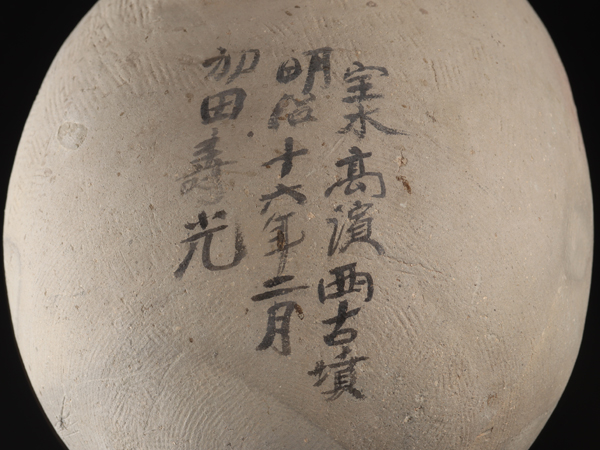 宝水高濱西古墳
明治十六年二月
加田壽光